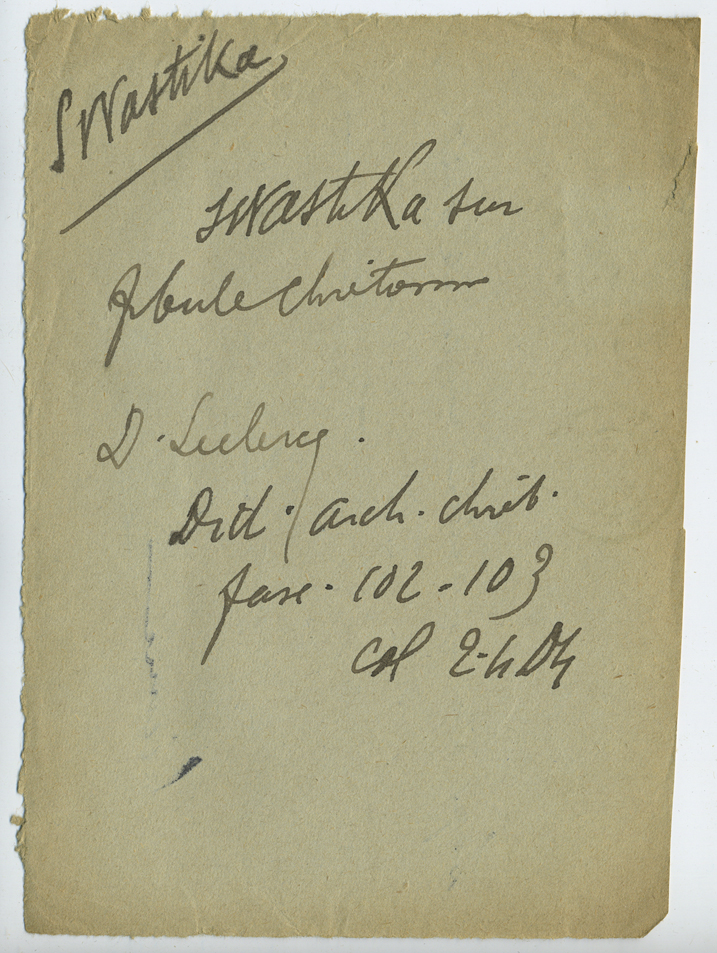 Swastika
swastika sur
fibule chrétienne
D. Leclercq.
Dict. arch. chrét.
fasc. 102-103
col